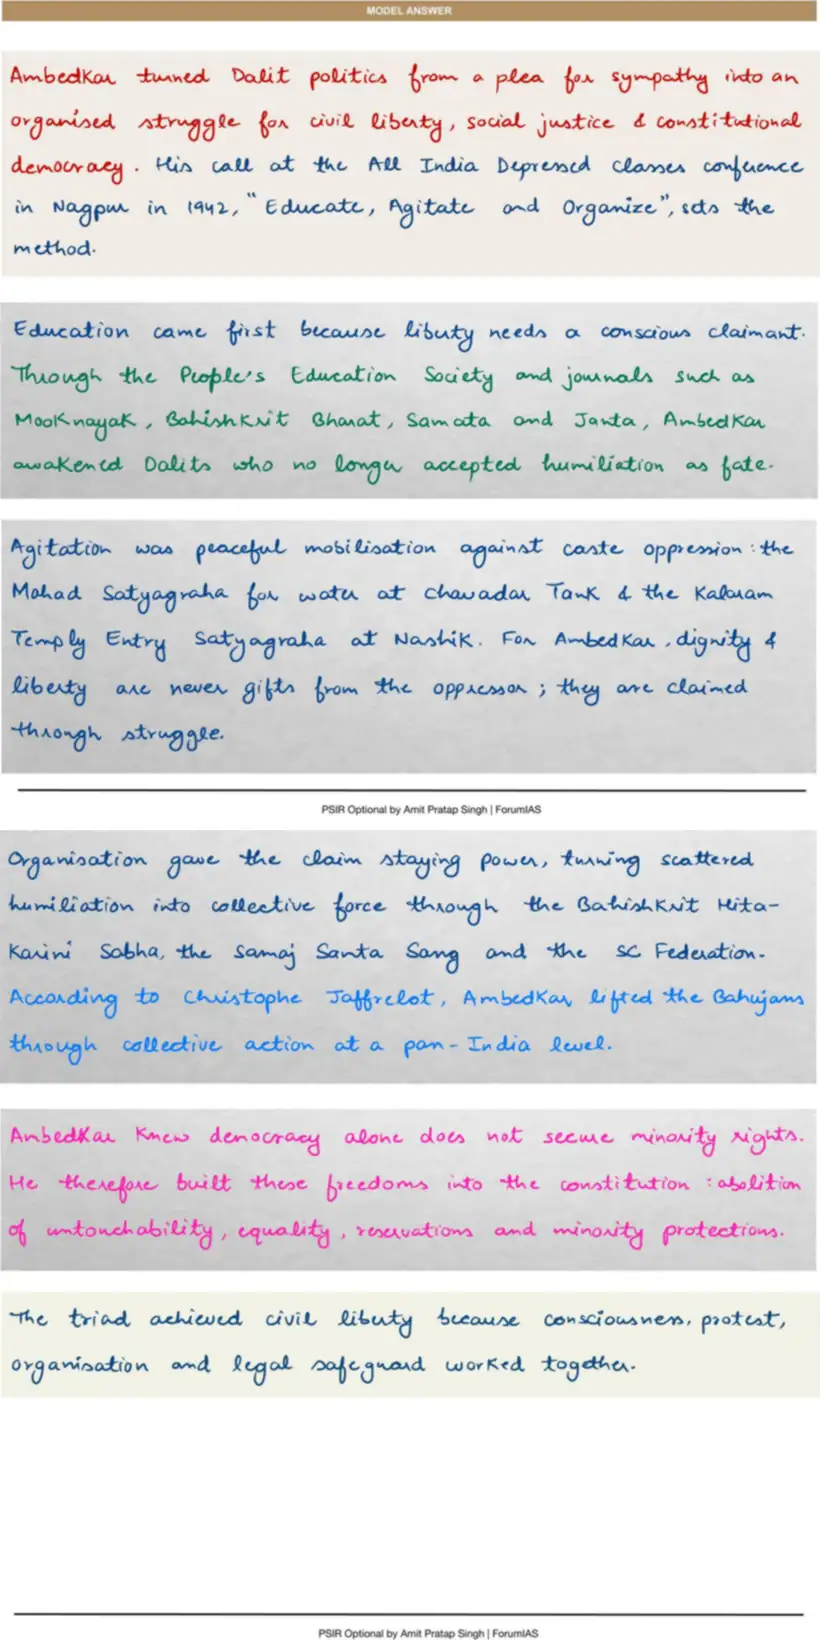 MODEL ANSWER
AmbedKar turned Dalit politics from a plea for sympathy into an
organised struggle for civil liberty, social justice & constitutional
democracy. His call at the All India Depressed Classes conference
in Nagpur in 1942, "Educate, Agitate and Organize", sets the
method.
Education came first because liberty needs a conscious claimant.
Through the People's Education Society and journals such as
MooKnayaK, BahishKrit Bharat, Samata and Janta, AmbedKar
awaKened Dalits who no longer accepted humiliation as fate.
Agitation was peaceful mobilisation against caste oppression : the
Mahad Satyagraha for water at Chavadar TanK & the Kalaram
Temply Entry Satyagraha at NashiK. For AmbedKar, dignity &
liberty are never gifts from the oppressor ; they are claimed
through struggle.
PSIR Optional by Amit Pratap Singh | ForumIAS
Organisation gave the claim staying power, turning scattered
humiliation into collective force through the BahishKrit Hita-
Karini Sabha, the Samaj Santa Sang and the SC Federation.
According to Christophe Jaffrelot, AmbedKar lifted the Bahujans
through collective action at a pan-India level.
AmbedKar Knew democracy alone does not secure minority rights.
He therefore built these freedoms into the constitution : abolition
of untouchability, equality, reservations and minority protections.
The triad achieved civil liberty because consciousness, protest,
organisation and legal safeguard worKed together.
PSIR Optional by Amit Pratap Singh | ForumIAS